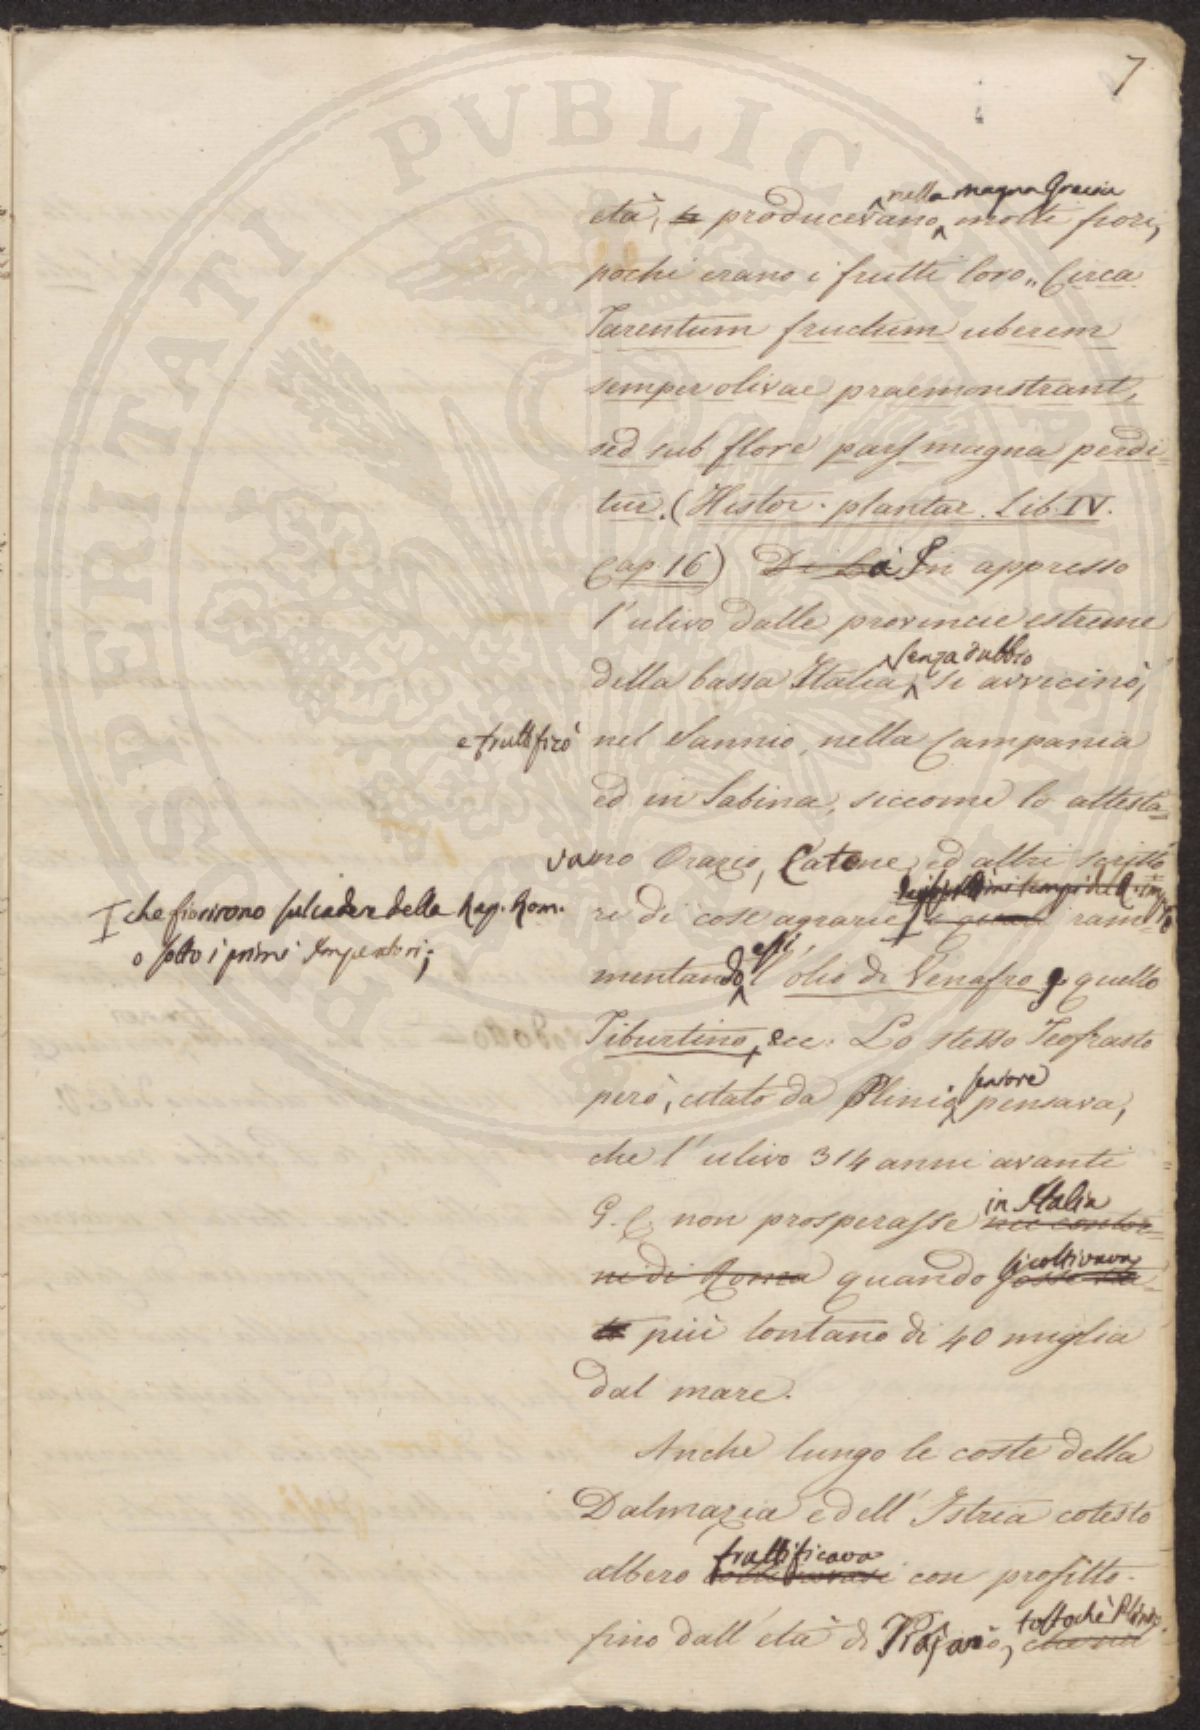 7
nella magna Grecia
età, producevano molti fiori,
pochi erano i frutti loro „ Circa
Tarentum fructum uberem
semper olivae praemonstrant,
sed sub flore pars magna perdi-
tur. (Histor. plantar. Lib. IV.
Cap 16) Di La In appresso
l'ulivo dalle provincie estreme
senza dubbio
della bassa Italia si avvicinò,
e fruttificò nel Sannio, nella Campania
ed in Sabina, siccome lo attesta-
vano Orazio, Catone, ed altri scritto
re di cose agrarie i quali ram-
che fiorirono sul cader della Rep. Rom.
o sotto i primi Imperatori;
essi
mentando l'olio di Venafro, e quello
Tiburtino, ecc. Lo stesso Teofrasto
però, citato da Plinio pensava,
che l'ulivo 314 anni avanti
in Italia
G. C. non prosperasse nei contor-
si coltivava
ni di Roma quando fosse
più lontano di 40 miglia
dal mare.
Anche lungo le coste della
Dalmazia e dell'Istria cotesto
fruttificava
albero con profitto
tostochè Plinio
fino dall'età di Trajano,
PROSPERITATI PVBLICAE